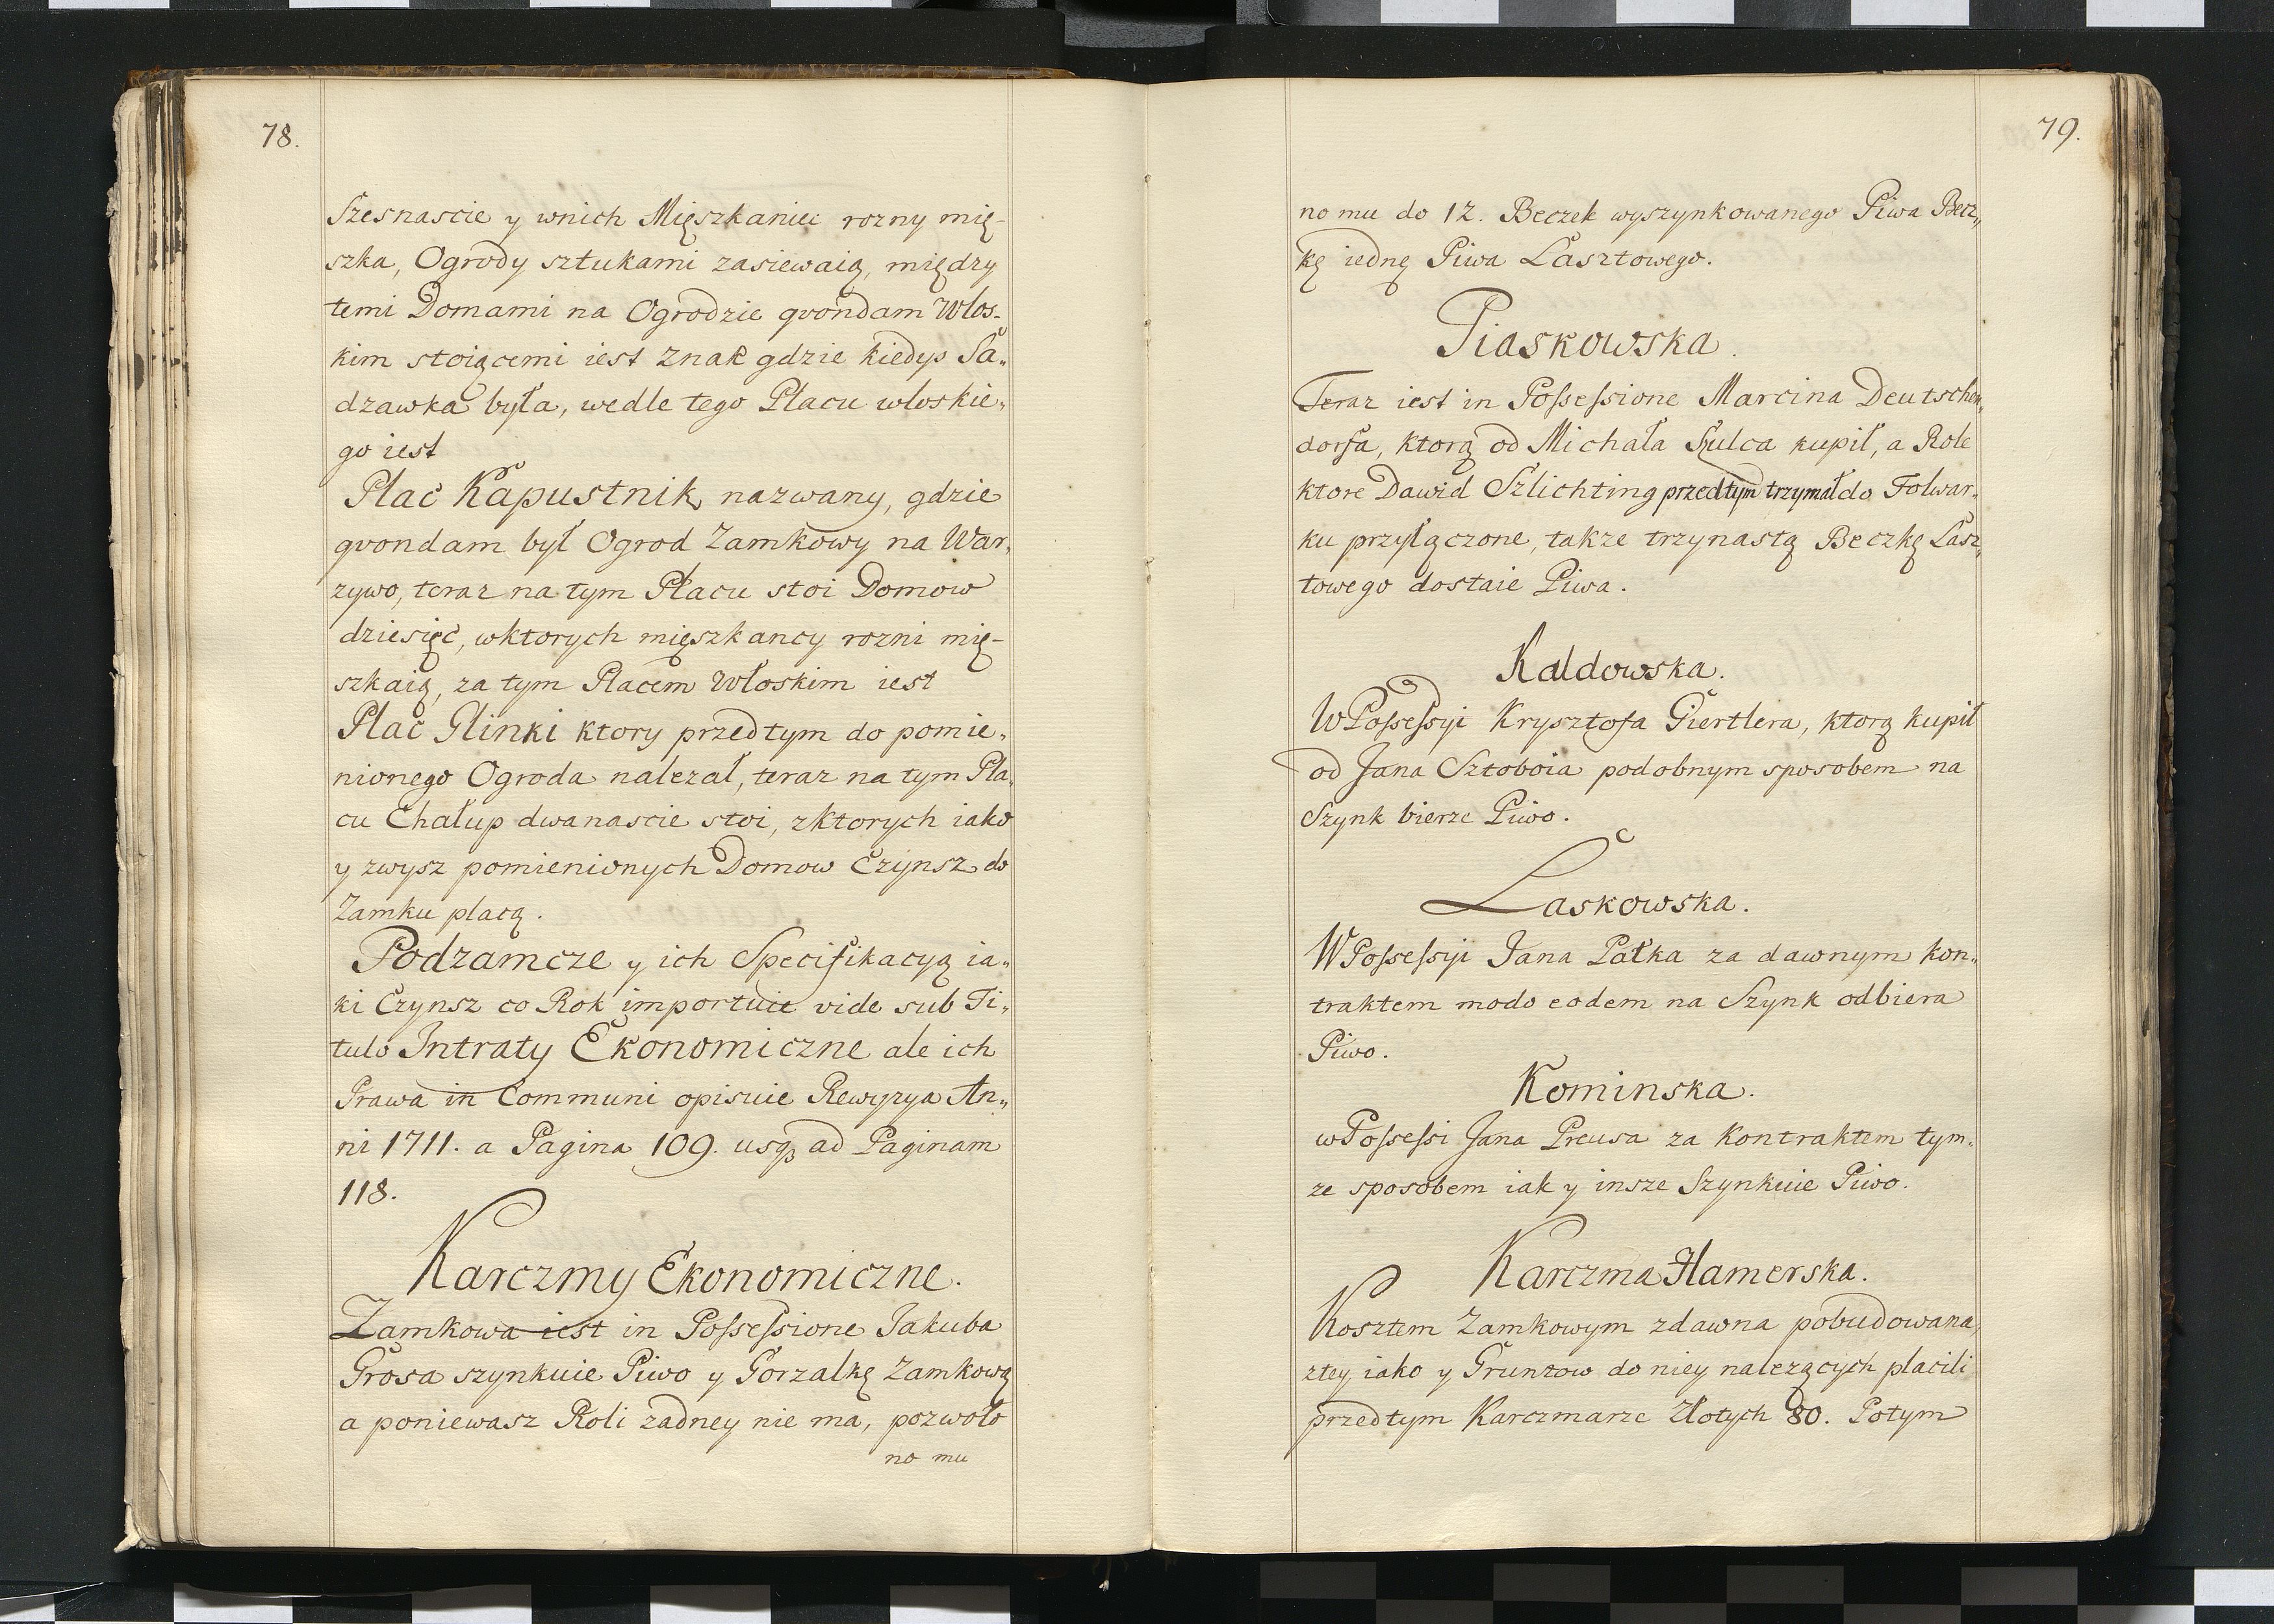 78.
Szesnascie y wnich Mięszkaniec rozny mię-
szka, Ogrody sztukami zasiewaią, między
temi Domami na Ogrodzie qvondam Włos-
kim stoiącemi iest znak gdzie kiedyś Sa„
dzawka była, wedle tego Placu włoskie„
go iest
Plac Kapustnik nazwany, gdzie
qvondam był Ogrod Zamkowy na War„
zywo, teraz na tym Placu stoi Domow
dziesięć, wktorych mięszkancy rozni mię-
szkaią, za tym Placem Włoskim iest
Plac Glinki ktory przedtym do pomie„
nionego Ogroda nalezał, teraz na tym Pla„
cu Chałup dwanascie stoi, zktorych iako
y zwysz pomienionych Domow Czynsz do
Zamku płacą.
Podzamcze y ich Specifikacyą ia„
ki Czynsz co Rok importuie vide sub Ti„
tulo Intraty Ekonomiczne ale ich
Prawa in Communi opisuie Rewyzya An„
ni 1711. a Pagina 109. usq; ad Paginam
118.
Karczmy Ekonomiczne.
Zamkowa iest in Possessione Jakuba
Grosa szynkuie Piwo y Gorzalkę Zamkową
a poniewasz Roli zadney nie ma, pozwolo
no mu
79.
no mu do 12. Beczek wyszynkowanego Piwa Becz„
kę iednę Piwa Lasztowego.
Piaskowska.
Teraz iest in Possessione Marcina Deutschen„
dorfa, ktorą od Michała Szulca kupił, a Role
ktore Dawid Szlichting przedtym trzymał do Folwar„
ku przyłączone, takze trzynastą Beczkę Lasz„
towego dostaie Piwa.
Kaldowska.
W Possessyi Krysztofa Giertlera, ktorą kupił
od Jana Sztoboia podobnym sposobem na
Szynk bierze Piwo.
Laskowska.
W Possessyi Jana Pałka za dawnym kon„
traktem modo eodem na Szynk odbiera
Piwo.
Kominska.
w Possessi Jana Preusa za Kontraktem tym„
ze sposobem iak y insze Szynkuie Piwo.
Karczma Hamerska.
Kosztem Zamkowym zdawna pobudowana,
ztey iako y Gruntow do niey nalezących płacili
przedtym Karczmarze Złotych 80. Potym